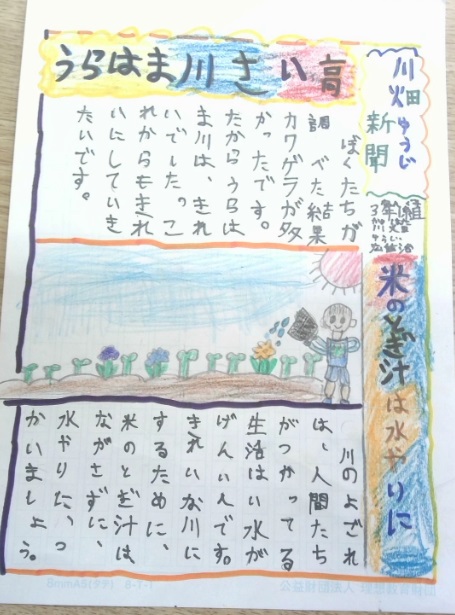 川畑ゅうじ
新聞
3年1組
川畑
うらはま川さい高
ぼくたちが
調べた結果
カワゲラが多
かったです。
だからうらは
ま川は、きれ
いでした。こ
れからもきれ
いにしていき
たいです。
米のとぎ汁は水やりに
川のよごれ
は、人間たち
がつかってる
生活はい水が
げんいんです。
きれいな川に
するために、
米のとぎ汁は
ながさずに、
水やりに、つ
かいましょう。
公益財団法人 理想教育財団